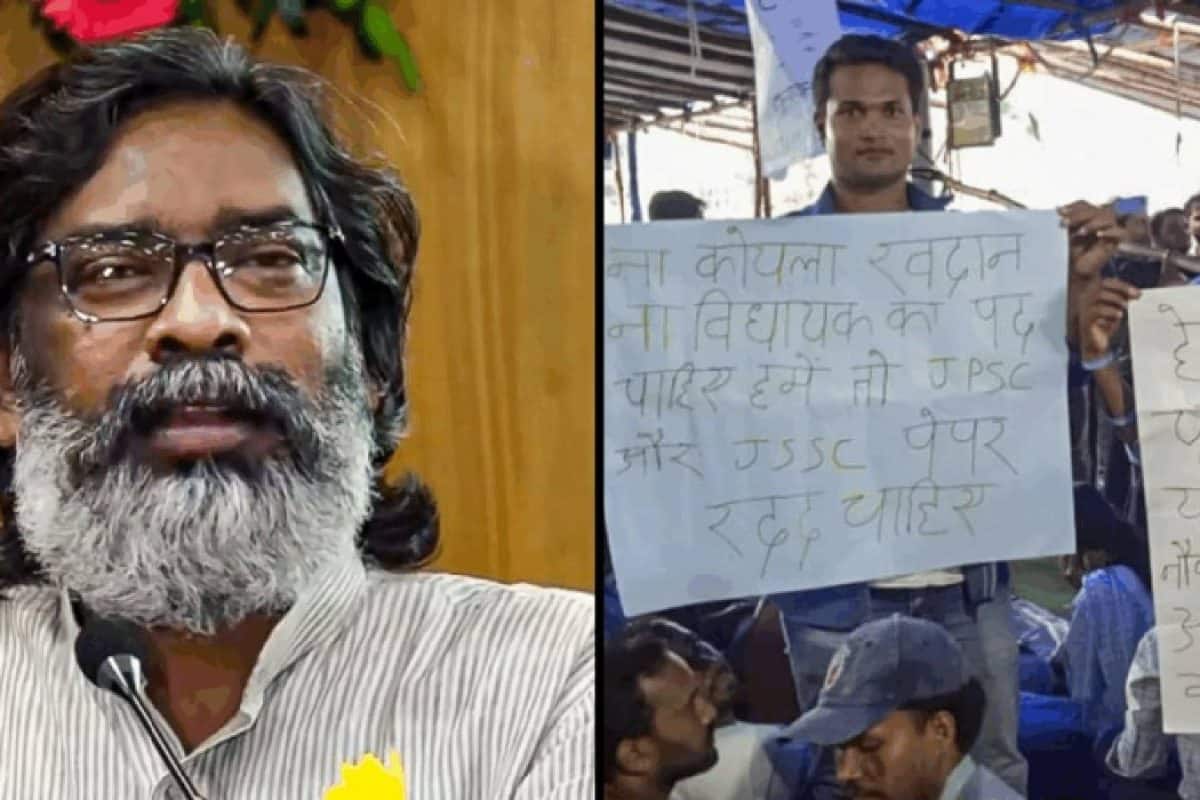 ना कोयला खदान
ना विधायक का पद
चाहिए हमें तो JPSC
और JSSC पेपर
रदद चाहिए
हे